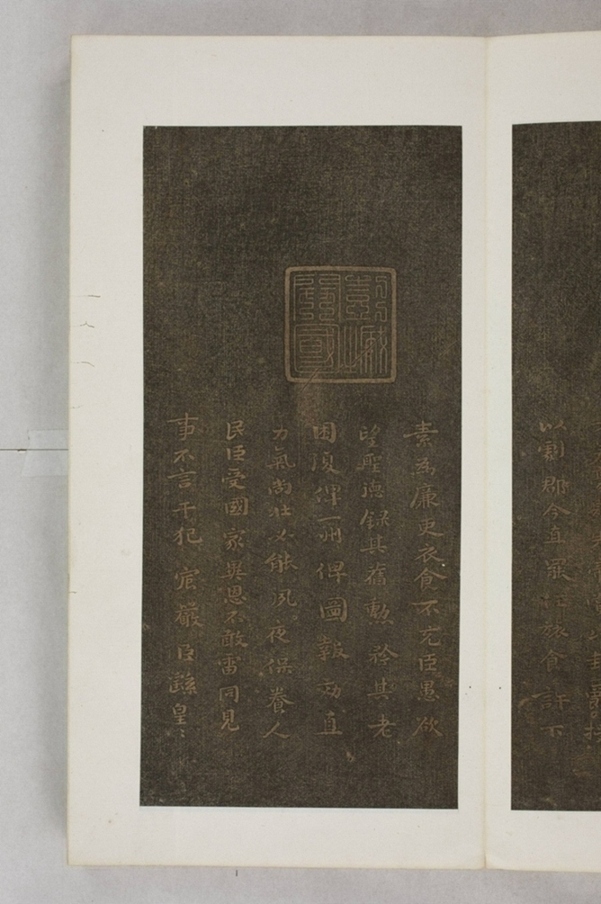 以劇郡今直罷任旅食許下
彭城開國
素為廉吏衣食不充臣愚欲
望聖德錄其舊勳矜其老
困復俾一州俾圖報効直
力氣尚壯必能夙夜保養人
民臣受國家異恩不敢雷同見
事不言干犯宸嚴臣繇皇〻